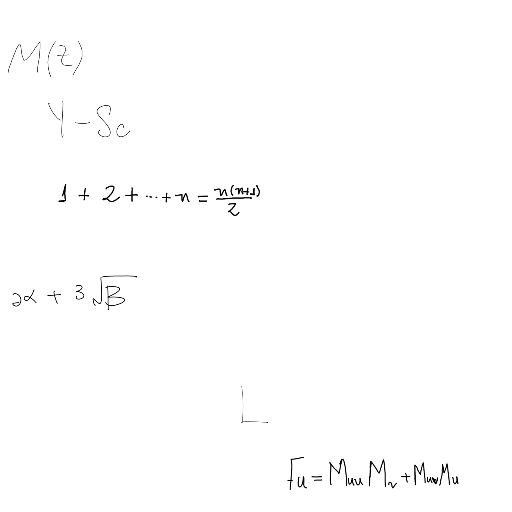 M(z)
Y - S_c
1 + 2 + ... + n = \frac{n(n+1)}{2}
2α + 3\sqrt{B}
L
F_u = M_{uu} M_v + M_{uv} M_u